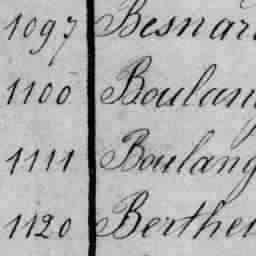 1097 Besnar
1100 Boulang
1111 Boulang
1120 Berthe